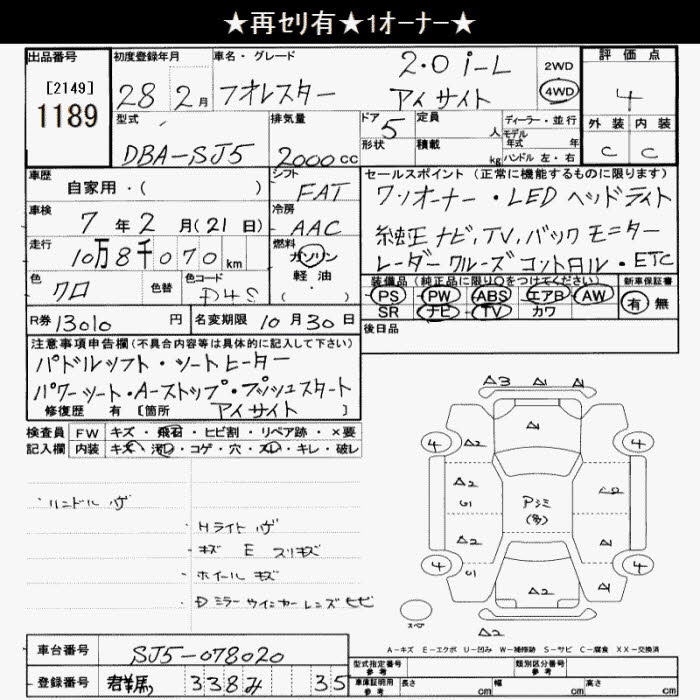 ★再セリ有★1オーナー★
出品番号
[2149]
1189
初度登録年月
28 2月
車名・グレード
フオレスター
2.0 i-L
アイサイト
2WD
4WD
評価点
4
外装 内装
C C
型式
DBA-SJ5
排気量
2000 cc
ドア
5
形状
定員
人
積載
kg
ディーラー・並行
モデル
年式 年
ハンドル 左・右
車歴
自家用・( )
シフト
FAT
車検
7年2月(21日)
冷房
AAC
走行
10万8千070km
燃料
ガソリン
軽油
・( )
色
クロ
色替
色コード
D4S
R券 13010 円
名変期限 10月30日
セールスポイント(正常に機能するものに限ります)
ワンオーナー・LEDヘッドライト
純正ナビ,TV,バックモニター
レーダークルーズコントロル・ETC
装備品(純正品に限り○をつけてください)
PS PW ABS エアB AW
SR ナビ TV カワ
新車保証書
有 無
後日品
注意事項申告欄(不具合内容等は具体的に記入して下さい)
パドルシフト・シートヒーター
パワーシート・A-ストップ・プッシュスタート
修復歴 有 [箇所 アイサイト ]
検査員 FW キズ・飛石・ヒビ割・リペア跡・×要
記入欄 内装 キズ・汚レ・コゲ・穴・スレ・キレ・破レ
ハンドル ハゲ
Hライト ハゲ
キズ E スリキズ
ホイール キズ
Dミラーウインカーレンズヒビ
△3 △1 △1
4 △2 △1 4
△2
U1
Pシミ
(多)
△2 △1
4 U1 △2 △1 4
スペア
△2
A-キズ E-エクボ U-凹み W-補修跡 S-サビ C-腐食 XX-交換済
車台番号 SJ5-078020
登録番号 群馬 338み 35
型式指定番号
参考
類別区分番号
参考
車庫証明用
参考
長さ cm 幅 cm 高さ cm